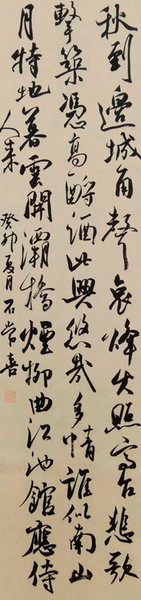 秋到邊城角聲哀烽火照高台悲歌
擊築憑高酹酒此興悠哉多情誰似南山
月特地暮雲開灞橋煙柳曲江池館應待
人來
癸卯夏月石常喜